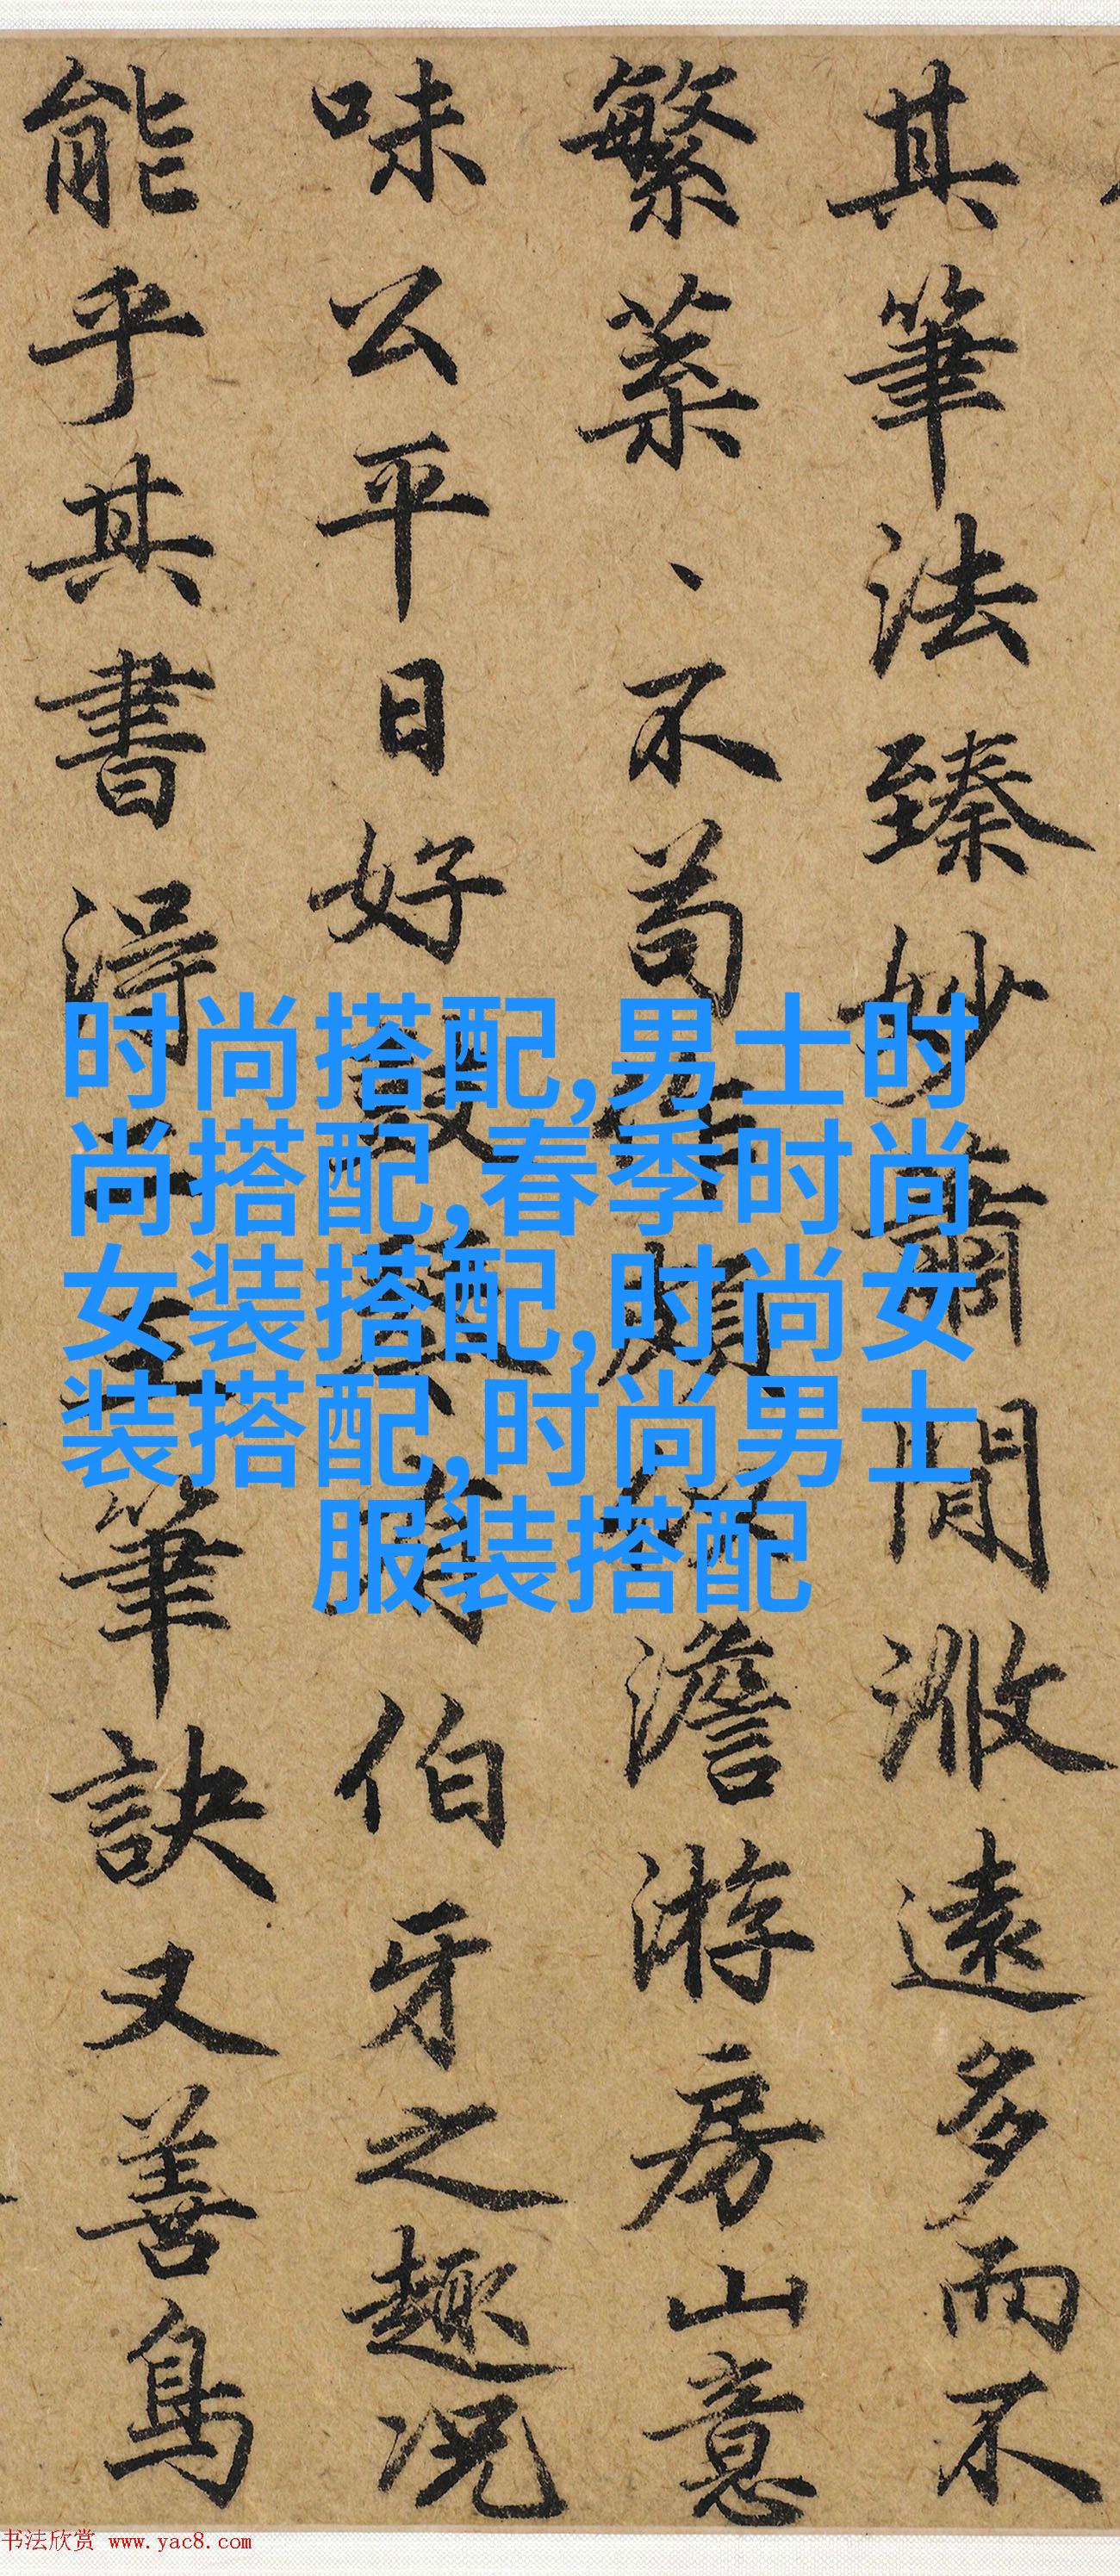 其筆法臻妙蕭閒㴑遠多而不
繁菜、不苟 澹游房山意
味公平日好鼓 伯牙之趣况
能乎其書得 筆訣又善鳥
时尚搭配,男士时
尚搭配,春季时尚
女装搭配,时尚女
装搭配,,时尚男士
服装搭配
书法欣赏 www.yac8.com